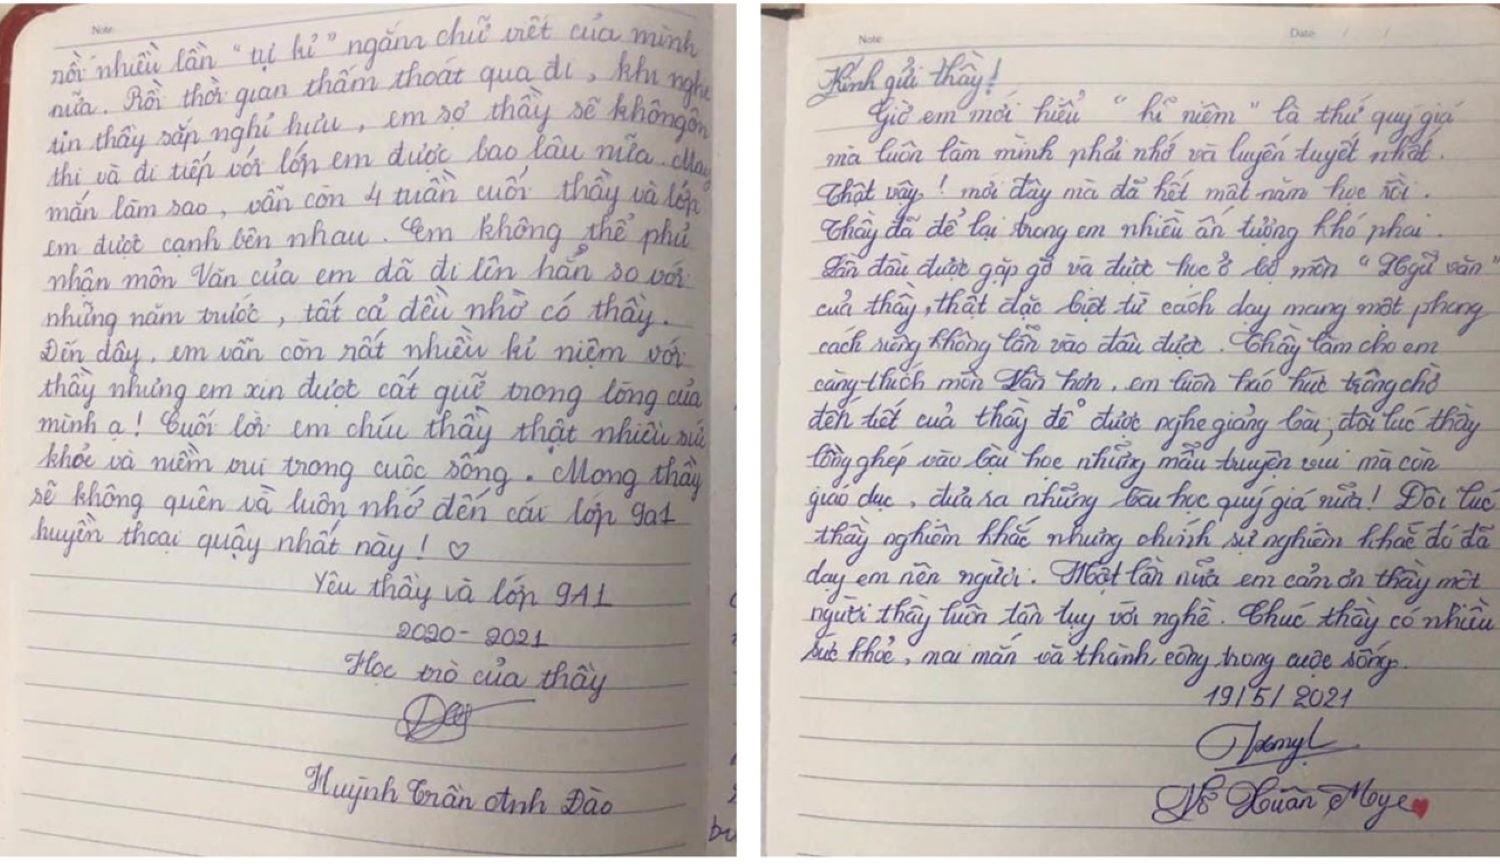 Note
rồi nhiều lần "tự kỉ" ngắm chữ viết của mình
nữa. Rồi thời gian thấm thoát qua đi, khi nghe
tin thầy sắp nghỉ hưu, em sợ thầy sẽ không ôn
thi và đi tiếp với lớp em được bao lâu nữa. May
mắn làm sao, vẫn còn 4 tuần cuối thầy và lớp
em được cạnh bên nhau. Em không thể phủ
nhận môn Văn của em đã đi lên hẳn so với
những năm trước, tất cả đều nhờ có thầy.
Đến đây, em vẫn còn rất nhiều kỉ niệm với
thầy nhưng em xin được cất giữ trong lòng của
mình ạ! Cuối lời em chíu thầy thật nhiều sứ
khỏe và niềm vui trong cuộc sống. Mong thầy
sẽ không quên và luôn nhớ đến cái lớp 9a1
huyền thoại quậy nhất này! ♡
Yêu thầy và lớp 9A1
2020 - 2021
Học trò của thầy
Huỳnh Trần Anh Đào
Note
Date / /
Kính gửi thầy!
Giờ em mới hiểu "kỉ niệm" là thứ quý giá
mà luôn làm mình phải nhớ và luyến tuyết nhất.
Thật vậy! mới đây mà đã hết một năm học rồi.
Thầy đã để lại trong em nhiều ấn tượng khó phai.
Lần đầu được gặp gỡ và được học ở bộ môn "Ngữ văn"
của thầy, thật đặc biệt từ cách dạy mang một phong
cách riêng không lẫn vào đâu được. Thầy làm cho em
càng thích môn Văn hơn, em luôn háo hức trông chờ
đến tiết của thầy để được nghe giảng bài, đôi lúc thầy
lồng ghép vào bài học những mẫu truyện vui mà còn
giáo dục, đưa ra những bài học quý giá nữa! Đôi lúc
thầy nghiêm khắc nhưng chính sự nghiêm khắc đó đã
dạy em nên người. Một lần nữa em cảm ơn thầy một
người thầy luôn tận tụy với nghề. Chúc thầy có nhiều
sức khoẻ, mai mắn và thành công trong cuộc sống.
19/5/2021
Võ Xuân Mye